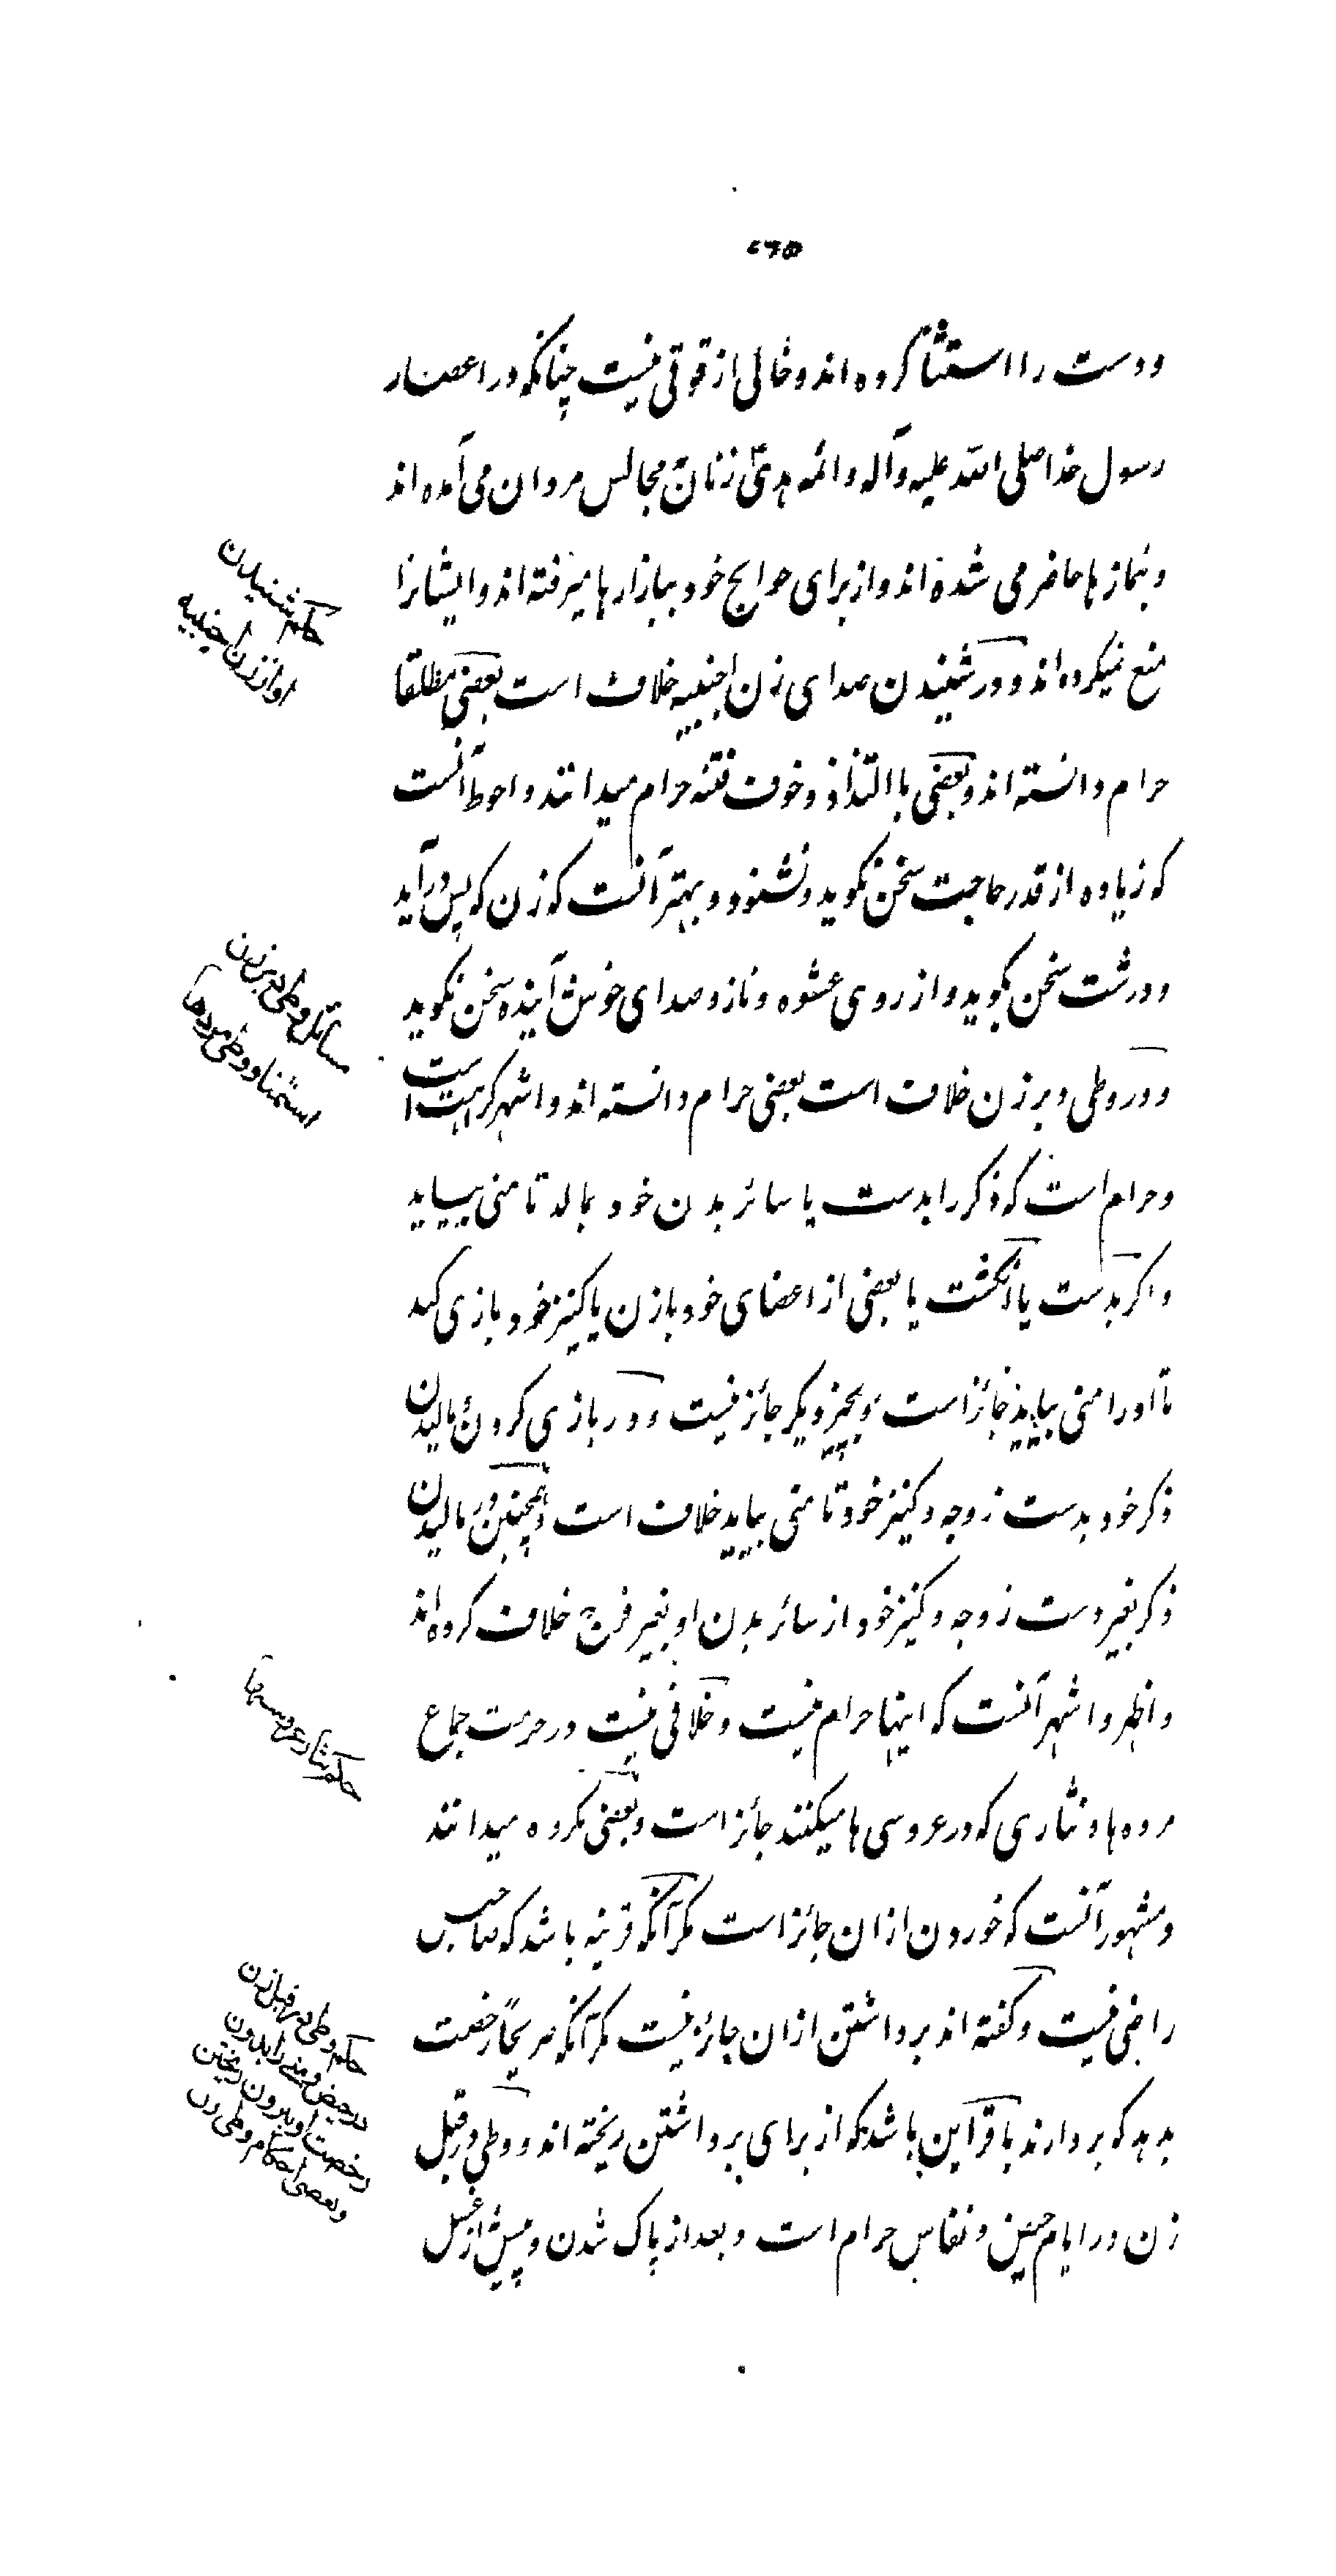 ۲۶۵
و دست را استثنا کرده اند و خالی از قوتی نیست چنانکه در اعصار
رسول خدا صلی الله علیه و آله و ائمه هدی زنان بمجالس مردان می آمده اند
و بنمازها حاضر می شده اند و از برای حوایج خود ببازارها میرفته اند و ایشانرا
منع نمیکرده اند و در شنیدن صدای زن اجنبیه خلاف است بعضی مطلقا
حرام دانسته اند و بعضی با التذاذ و خوف فتنه حرام میدانند و احوط آنست
که زیاده از قدر حاجت سخن نکوید و نشنود و بهتر آنست که زن که پس در آید
و درشت سخن بکوید و از روی عشوه و ناز و صدای خوش آینده سخن نکوید
و در وطی دبر زن خلاف است بعضی حرام دانسته اند و اشهر کراهت است
و حرام است که ذکر را بدست یا سائر بدن خود بمالد تا منی بیاید
و اکر بدست یا انکشت یا بعضی از اعضای خود با زن یا کنیز خود بازی کند
تا او را منی بیاید جائز است و بچیز دیکر جائز نیست و در بازی کردن و مالیدن
ذکر خود بدست زوجه و کنیز خود تا منی بیاید خلاف است و همچنین در مالیدن
ذکر بغیر دست زوجه و کنیز خود از سائر بدن او بغیر فرج خلاف کرده اند
و اظهر و اشهر آنست که اینها حرام نیست و خلافی نیست در حرمت جماع
مرده ها و نثاری که در عروسی ها میکنند جائز است و بعضی مکروه میدانند
و مشهور آنست که خوردن ازان جائز است مکر آنکه قرینه باشد که صاحبش
راضی نیست و کفته اند برداشتن ازان جائز نیست مکر آنکه صریحاً رخصت
بدهد که بردارند یا قرآین باشد که از برای برداشتن ریخته اند و وطی در قبل
زن در ایام حیض و نفاس حرام است و بعد از پاک شدن و پیش از غسل
حکم شنیدن
اواز زن اجنبیه
مسائل وطی دبر زن
استمنا و وطی مرده ها
حکم نثار عروسیها
حکم وطی در قبل زن
در حیض و منی را بدون
رخصت او بیرون ریختن
و بعضی احکام وطی زن